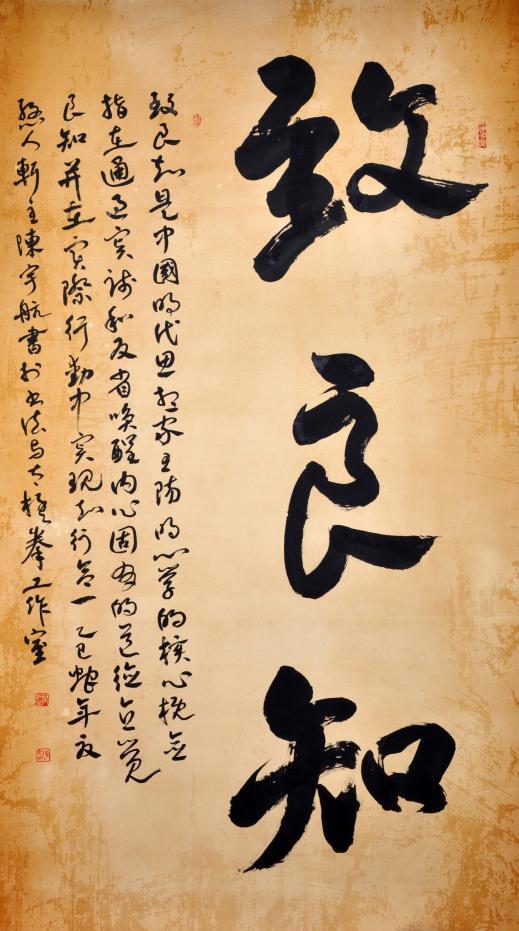 致良知
致良知是中國明代思想家王陽明心学的核心概念
指在通过实践和反省唤醒内心固有的道德直觉
良知并在实際行動中实现知行合一乙巳蛇年
人軒主陳宇航書於书法与太極拳工作室